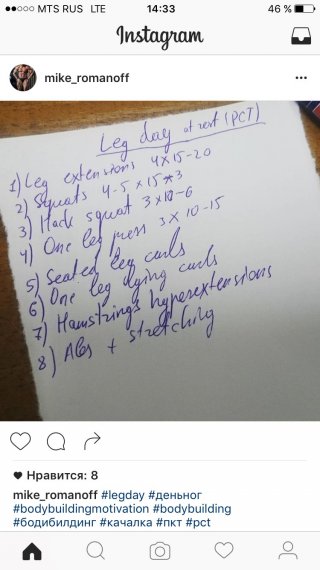 MTS RUS LTE 14:33 46 %
Instagram
mike_romanoff
Leg day at rest (PCT)
1) Leg extensions 4x15-20
2) Squats 4-5 x 15→3
3) Hack squat 3x10-6
4) One leg press 3x10-15
5) Seated leg curls
6) One leg lying curls
7) Hamstrings hyperextensions
8) Abs + stretching
Нравится: 8
mike_romanoff #legday #деньног
#bodybuildingmotivation #bodybuilding
#бодибилдинг #качалка #пкт #pct